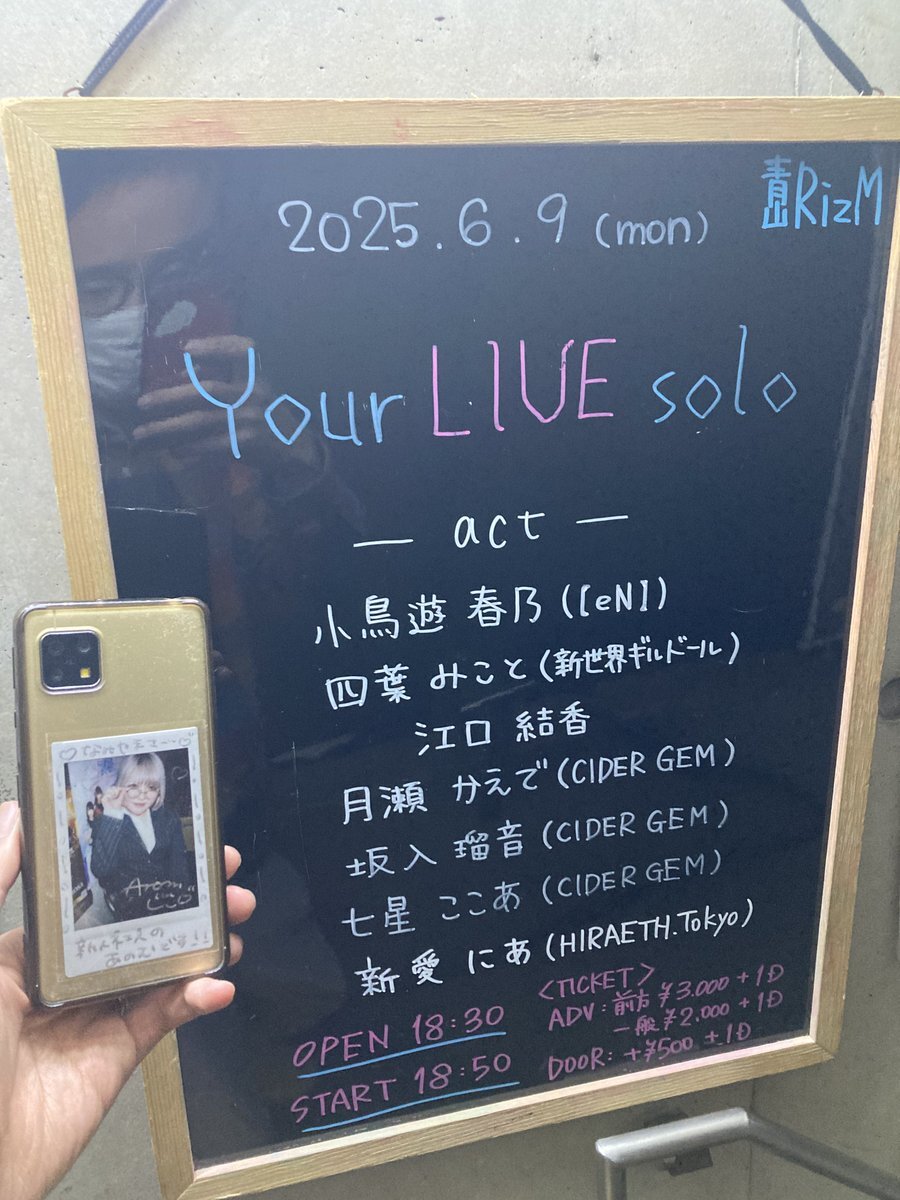 2025.6.9 (mon)
青山RizM
Your LIVE solo
— act —
小鳥遊 春乃 ([eN])
四葉 みこと (新世界ギルドール)
江口 結香
月瀬 かえで (CIDER GEM)
坂入 瑠音 (CIDER GEM)
七星 ここあ (CIDER GEM)
新愛 にあ (HIRAETH.Tokyo)
OPEN 18:30
START 18:50
<TICKET>
ADV: 前方 ¥3.000+1D
一般 ¥2.000+1D
DOOR: +¥500 +1D
です!!